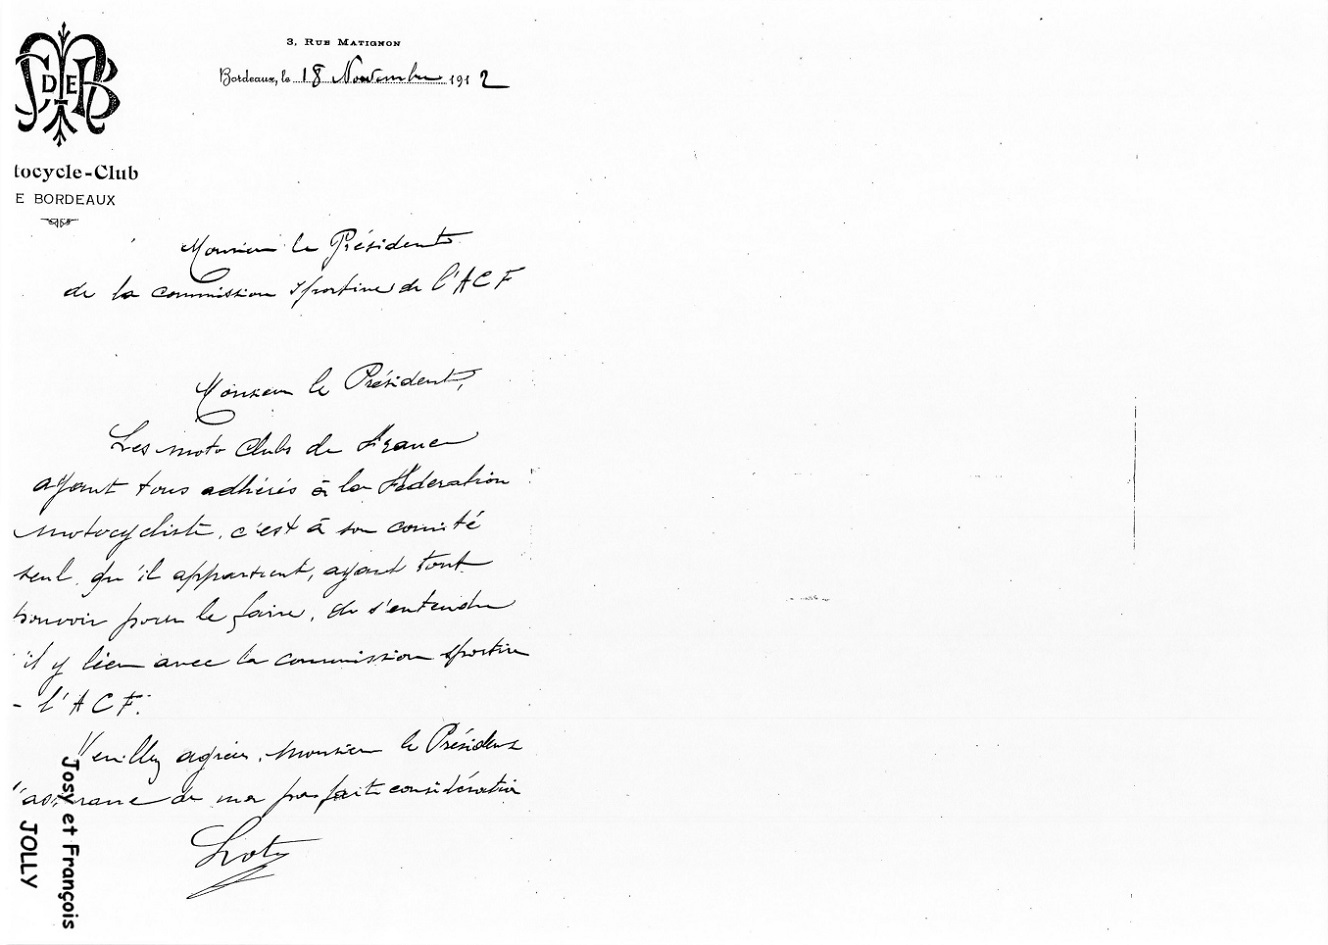 3, Rue Matignon
Bordeaux, le 18 Novembre 1912
DE
tocycle-Club
E BORDEAUX
Monsieur le Président
de la commission sportive de l'ACF
Monsieur le Président,
Les moto Clubs de France
ayant tous adhérés à la Fédération
motocycliste, c'est à son comité
seul qu'il appartient, ayant tout
pouvoir pour le faire, de s'entendre
il y lieu avec la commission sportive
l'ACF.
Veuillez agréer, Monsieur le Président
l'assurance de ma parfaite considération
Josy et François
JOLLY